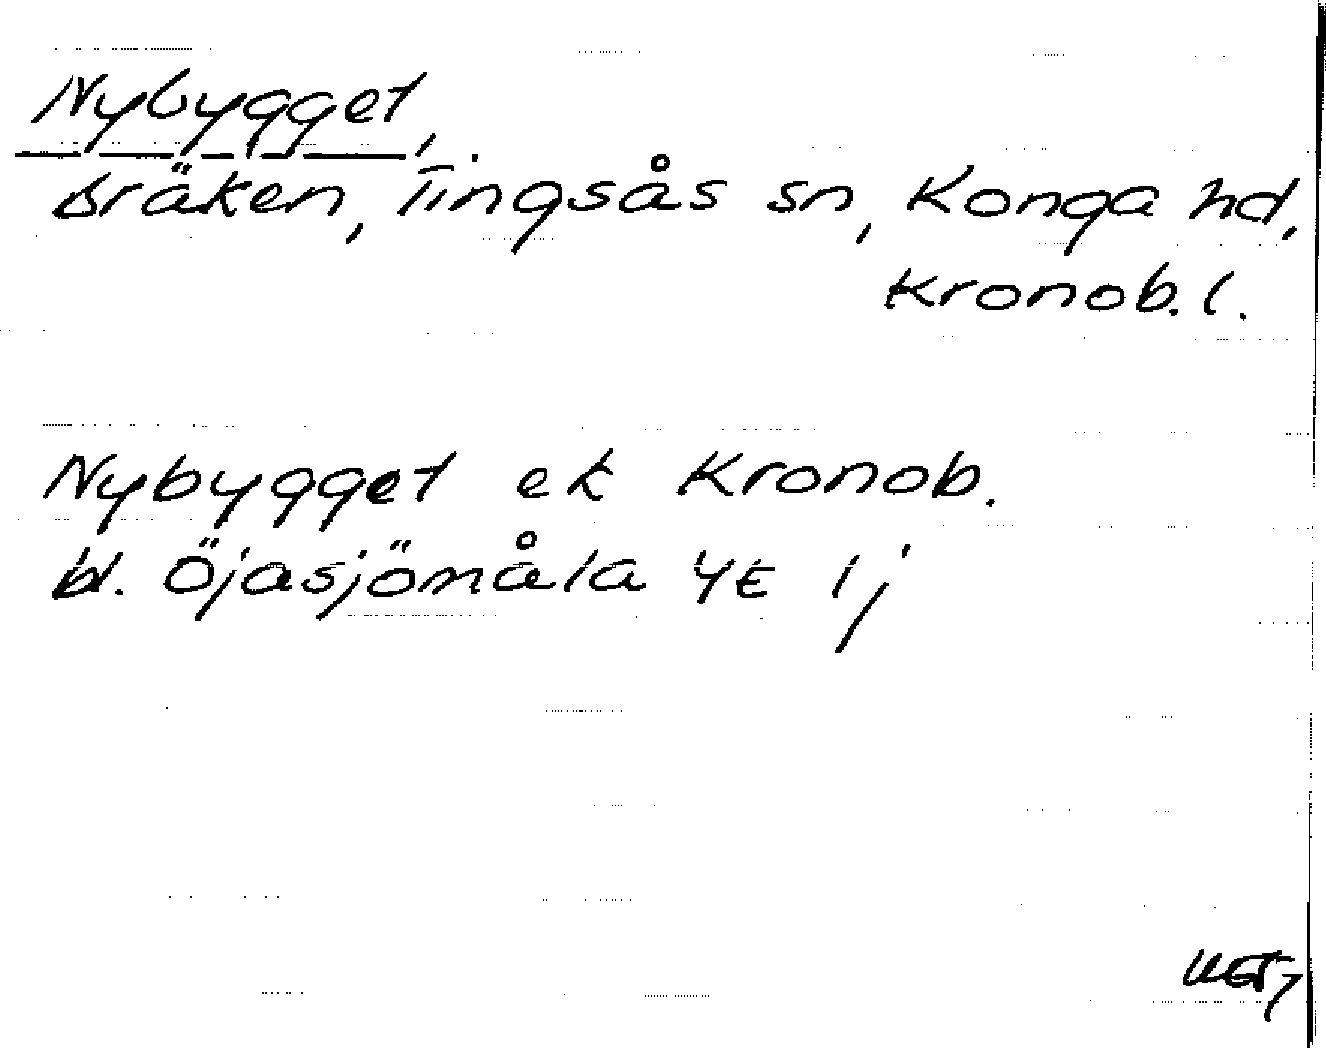 Nybygget,
bräken, Tingsås sn, Konga hd,
Kronob. l.
Nybygget ek Kronob.
bl. Öjasjömåla 4E 1j